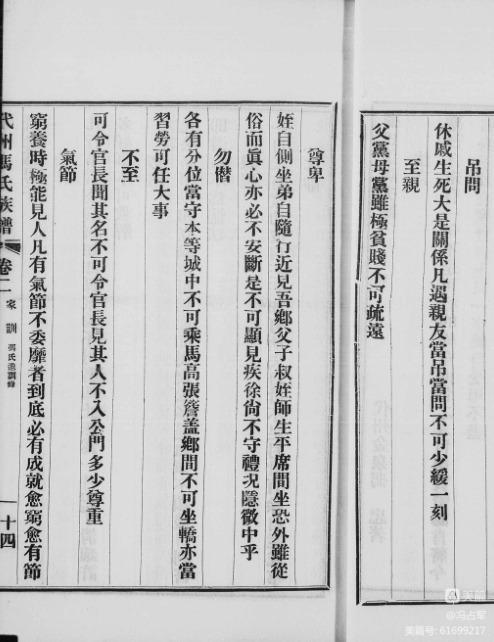 吊問
休戚生死大是關係凡遇親友當吊當問不可少緩一刻
至親
父黨母黨雖極貧賤不可疏遠
尊卑
姪自側坐弟自隨行近見吾鄉父子叔姪師生平席間坐恐外雖從
俗而眞心亦必不安斷是不可顯見疾徐尙不守禮况隱微中乎
勿僭
各有分位當守本等城中不可乘馬高張簷盖鄉間不可坐轎亦當
習勞可任大事
不至
可令官長聞其名不可令官長見其人不入公門多少尊重
氣節
窮養時極能見人凡有氣節不委靡者到底必有成就愈窮愈有節
代州馮氏族譜 卷二 家訓 馮氏彜訓錄 十四
美篇
@冯占军
美篇号: 61699217